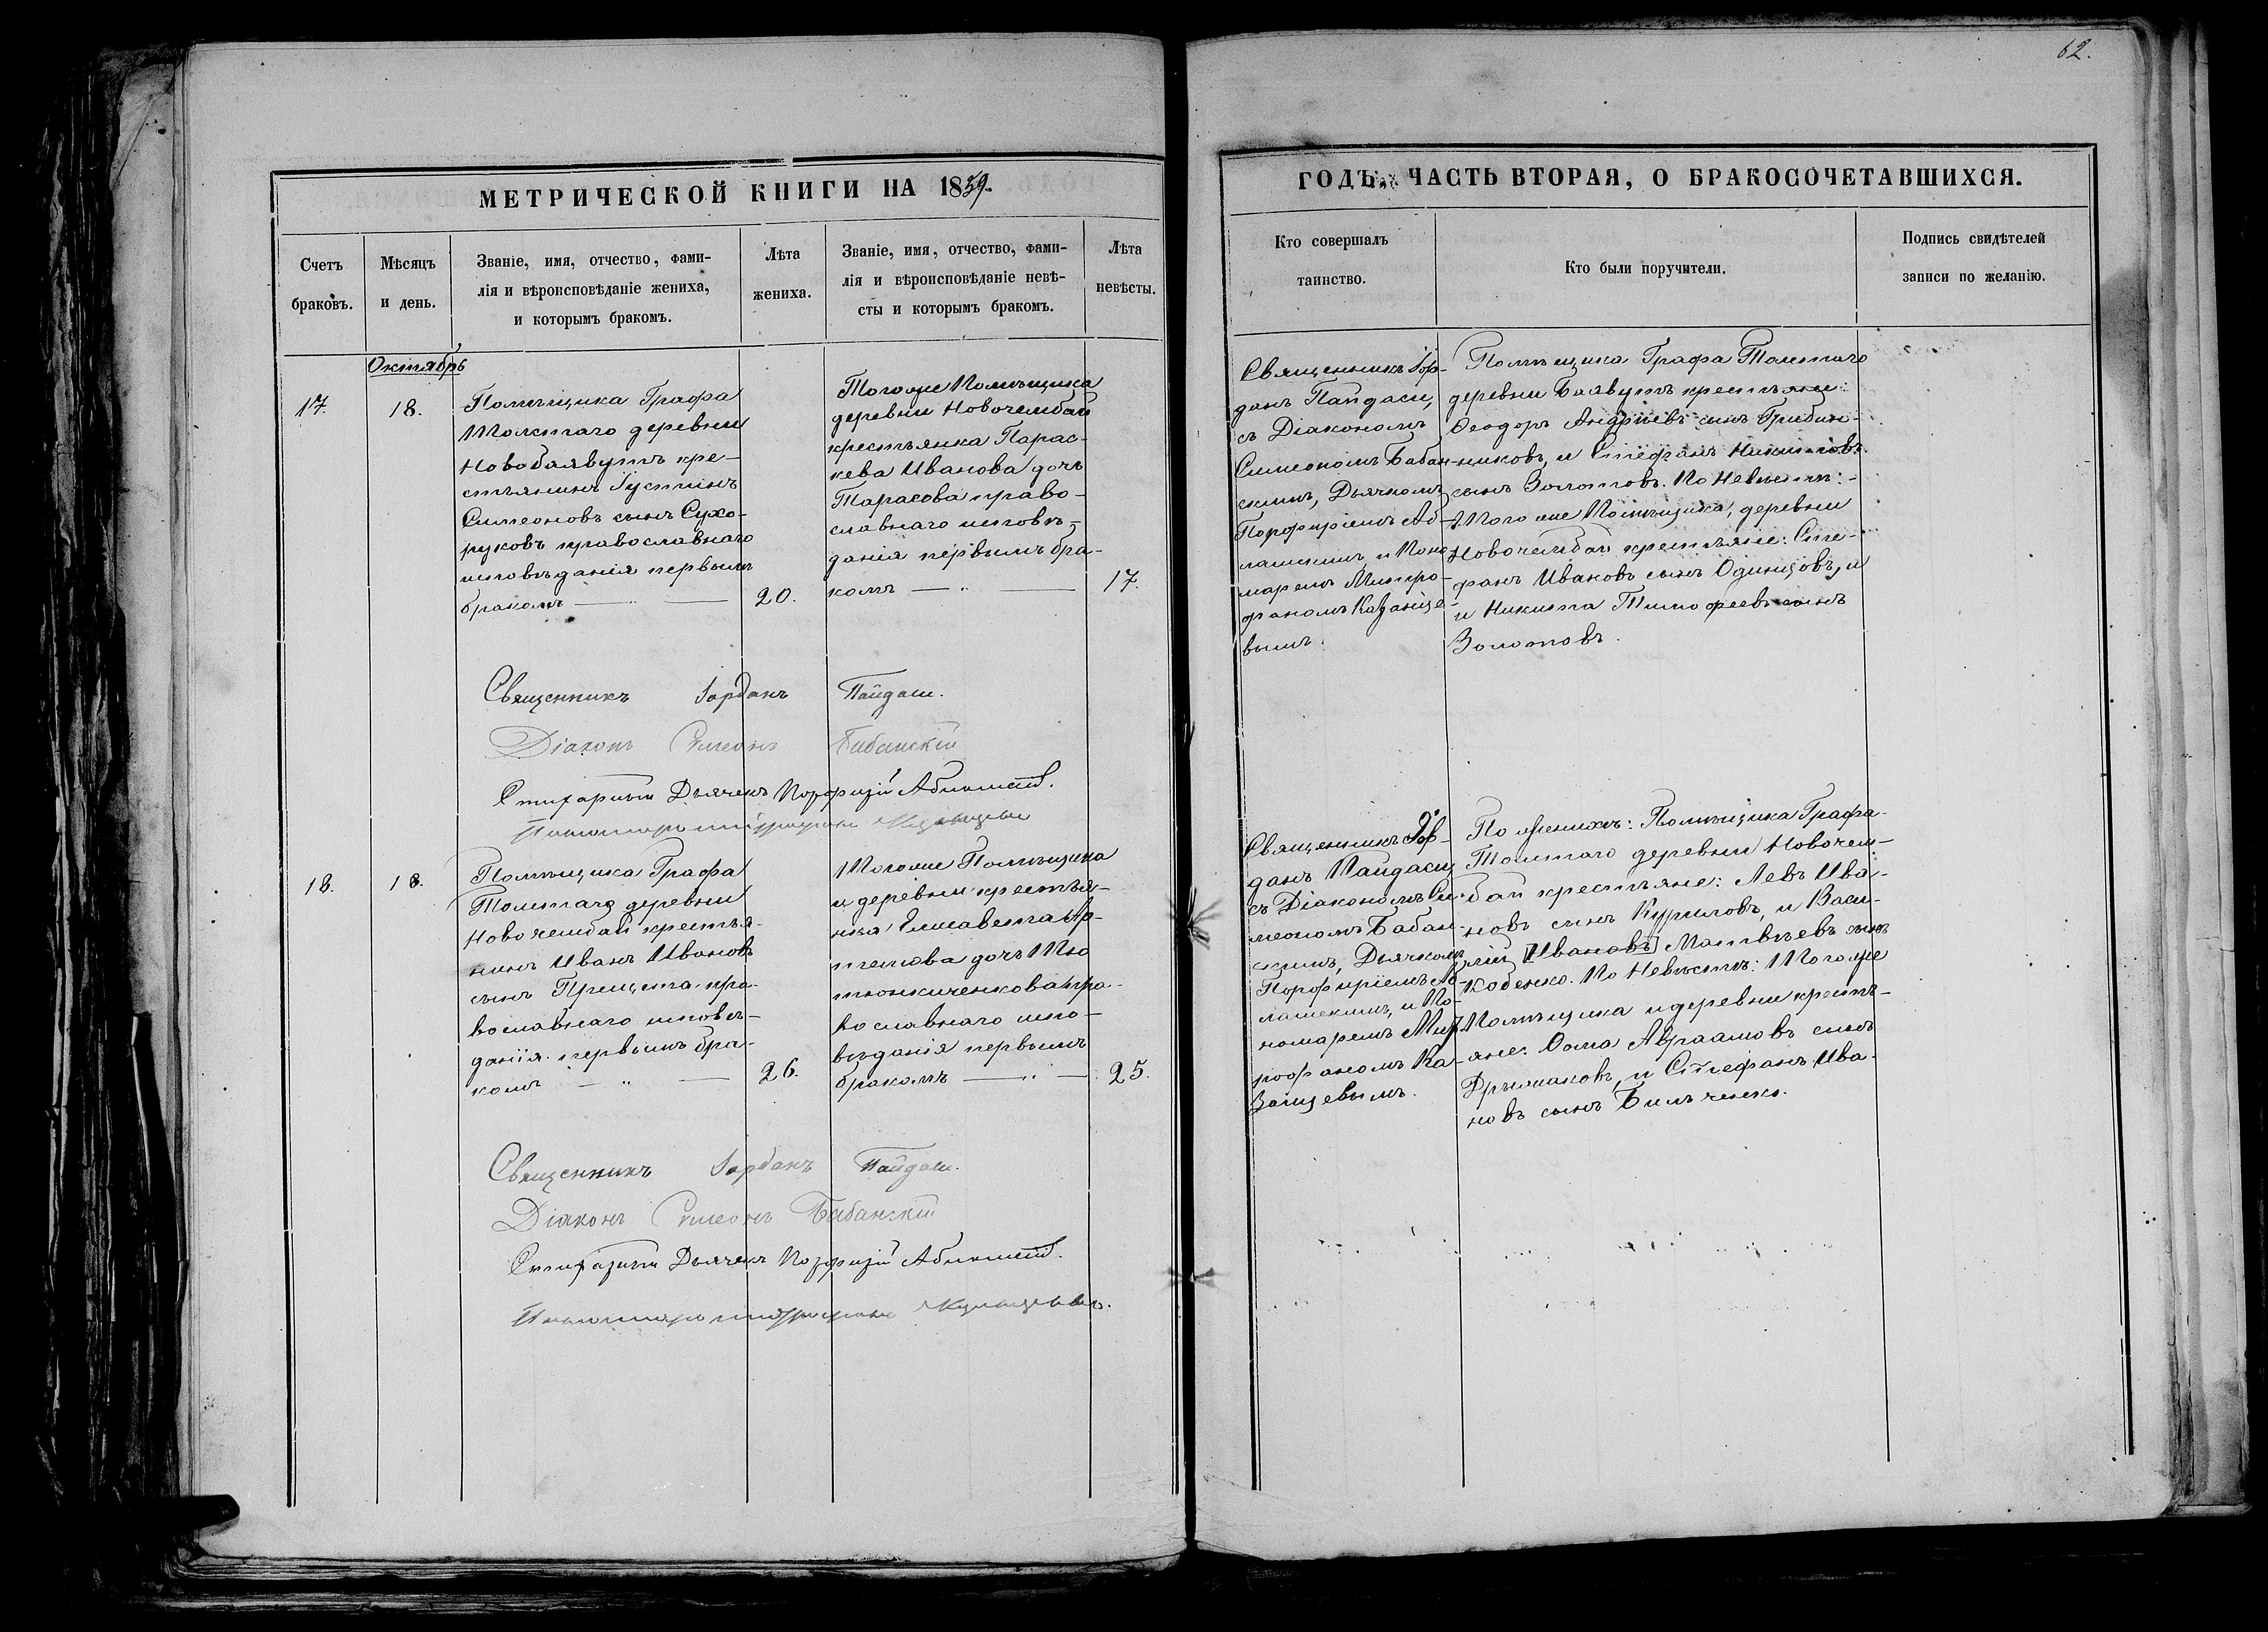 62.
МЕТРИЧЕСКОЙ КНИГИ НА 1859
ГОДЪ, ЧАСТЬ ВТОРАЯ, О БРАКОСОЧЕТАВШИХСЯ.
Счетъ
браковъ.
Мѣсяцъ
и день.
Званіе, имя, отчество, фами-
лія и вѣроисповѣданіе жениха,
и которымъ бракомъ.
Лѣта
жениха.
Званіе, имя, отчество, фами-
лія и вѣроисповѣданіе невѣ-
сты и которымъ бракомъ.
Лѣта
невѣсты.
Кто совершалъ
таинство.
Кто были поручители.
Подпись свидѣтелей
записи по желанію.
Октябрь
17.
18.
Помѣщика Графа
Толстаго деревни
Новобаявутъ кре-
стьянинъ Іустинъ
Симеоновъ сынъ Сухо-
руковъ православнаго
исповѣданія первымъ
бракомъ
20.
Тогоже Помѣщика
деревни Новочембай
крестьянка Парас-
кева Иванова дочь
Тарасова право-
славнаго исповѣ-
данія первымъ бра-
комъ
17.
Священникъ Іор-
данъ Пайдаси,
съ Діакономъ
Симеономъ Бабан-
скимъ, Дьячкомъ
Порфиріемъ Аб-
лашскимъ, и Поно
маремъ Митро-
фаномъ Казанце-
вымъ.
Помѣщика Графа Толстаго
деревни Баявутъ крестьяне:
Ѳеодоръ Андріевъ сынъ Грибин-
никовъ, и Стефанъ Никитовъ
сынъ Золотовъ. По Невѣстѣ:
Того же Помѣщика, деревни
Новочембай крестьяне: Сте-
фанъ Ивановъ сынъ Одинцовъ, и
и Никита Тимофеевъ сынъ
Золотовъ.
Священникъ Іорданъ Пайдаси.
Діаконъ Симеонъ Бабанскій
Стихарный Дьячекъ Порфирій
18.
18.
Помѣщика Графа
Толстаго деревни
Новочембай крестья-
нинъ Иванъ Ивановъ
сынъ Прищепа пра-
вославнаго исповѣ-
данія первымъ бра-
комъ
26.
Тогоже Помѣщика
и деревни крестья-
нка Елисавета Ар-
темова дочь Тю
тюнниченкова пра-
вославнаго испо-
вѣданія первымъ
бракомъ
25.
Священникъ Іор-
данъ Пайдаси
съ Діакономъ Си-
меономъ Бабан-
скимъ, Дьячкомъ
Порфиріемъ Аб-
лашскимъ, и По-
номаремъ Мит
рофаномъ Ка-
занцевымъ.
По Женихѣ: Помѣщика Графа
Толстаго деревни Новочем-
бай крестьяне: Левъ Ива-
новъ сынъ Куриловъ, и Васи-
лій [Ивановъ] Матвѣевъ сынъ
Кобенко. По Невѣстѣ: Тогоже
Помѣщика и деревни кресть-
яне: Ѳома Авраамовъ сынъ
и Стефанъ Ива-
новъ сынъ Бильченко.
Священникъ Іорданъ Пайдаси.
Діаконъ Симеонъ Бабанскій
Стихарный Дьячекъ Порфирій